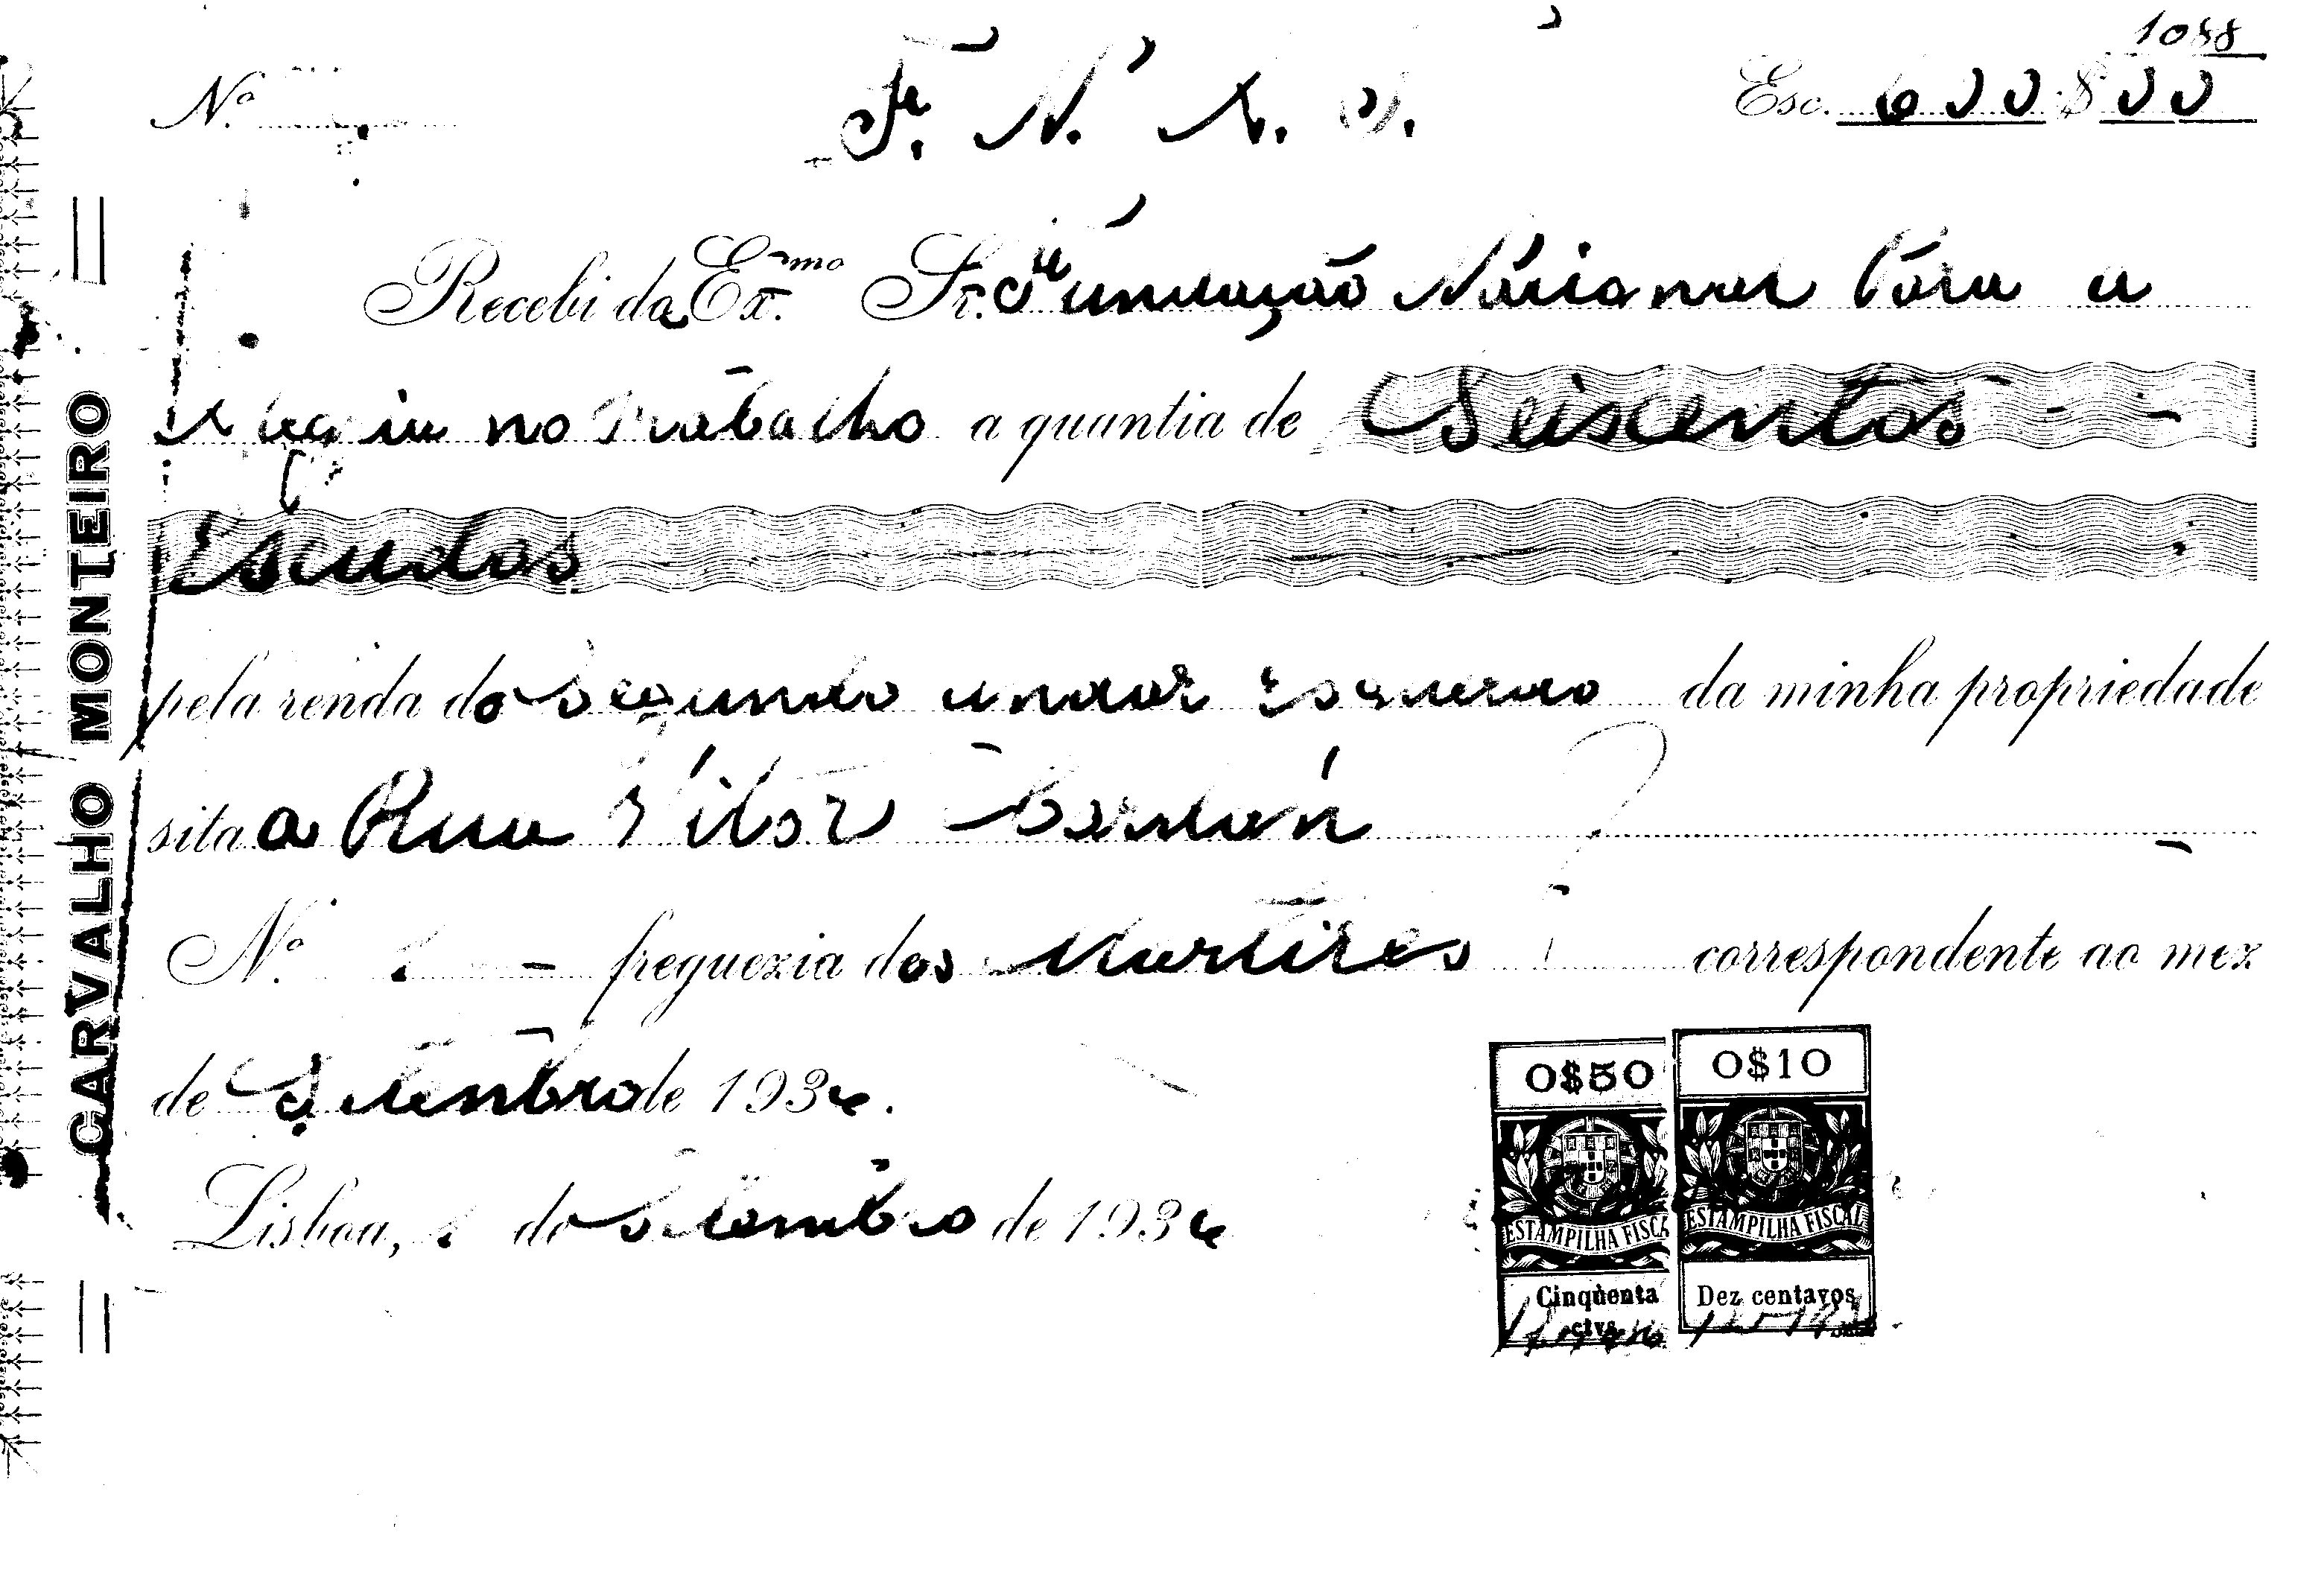 1088
Nº
F. N. A. T.
Esc. 600$00
Recebi da Ex.mo Sr. Fundação Nacional Para a
Alegria no Trabalho a quantia de Seiscentos
Escudos
pela renda do segundo andar esquerdo da minha propriedade
sita a Rua Vitor Cordon
Nº freguezia dos Martires correspondente ao mez
de Setembro de 1936.
Lisboa, de Setembro de 1936
CARVALHO MONTEIRO
O$50
ESTAMPILHA FISCA
Cinqüenta
ctvs.
O$10
ESTAMPILHA FISCAL
Dez centavos